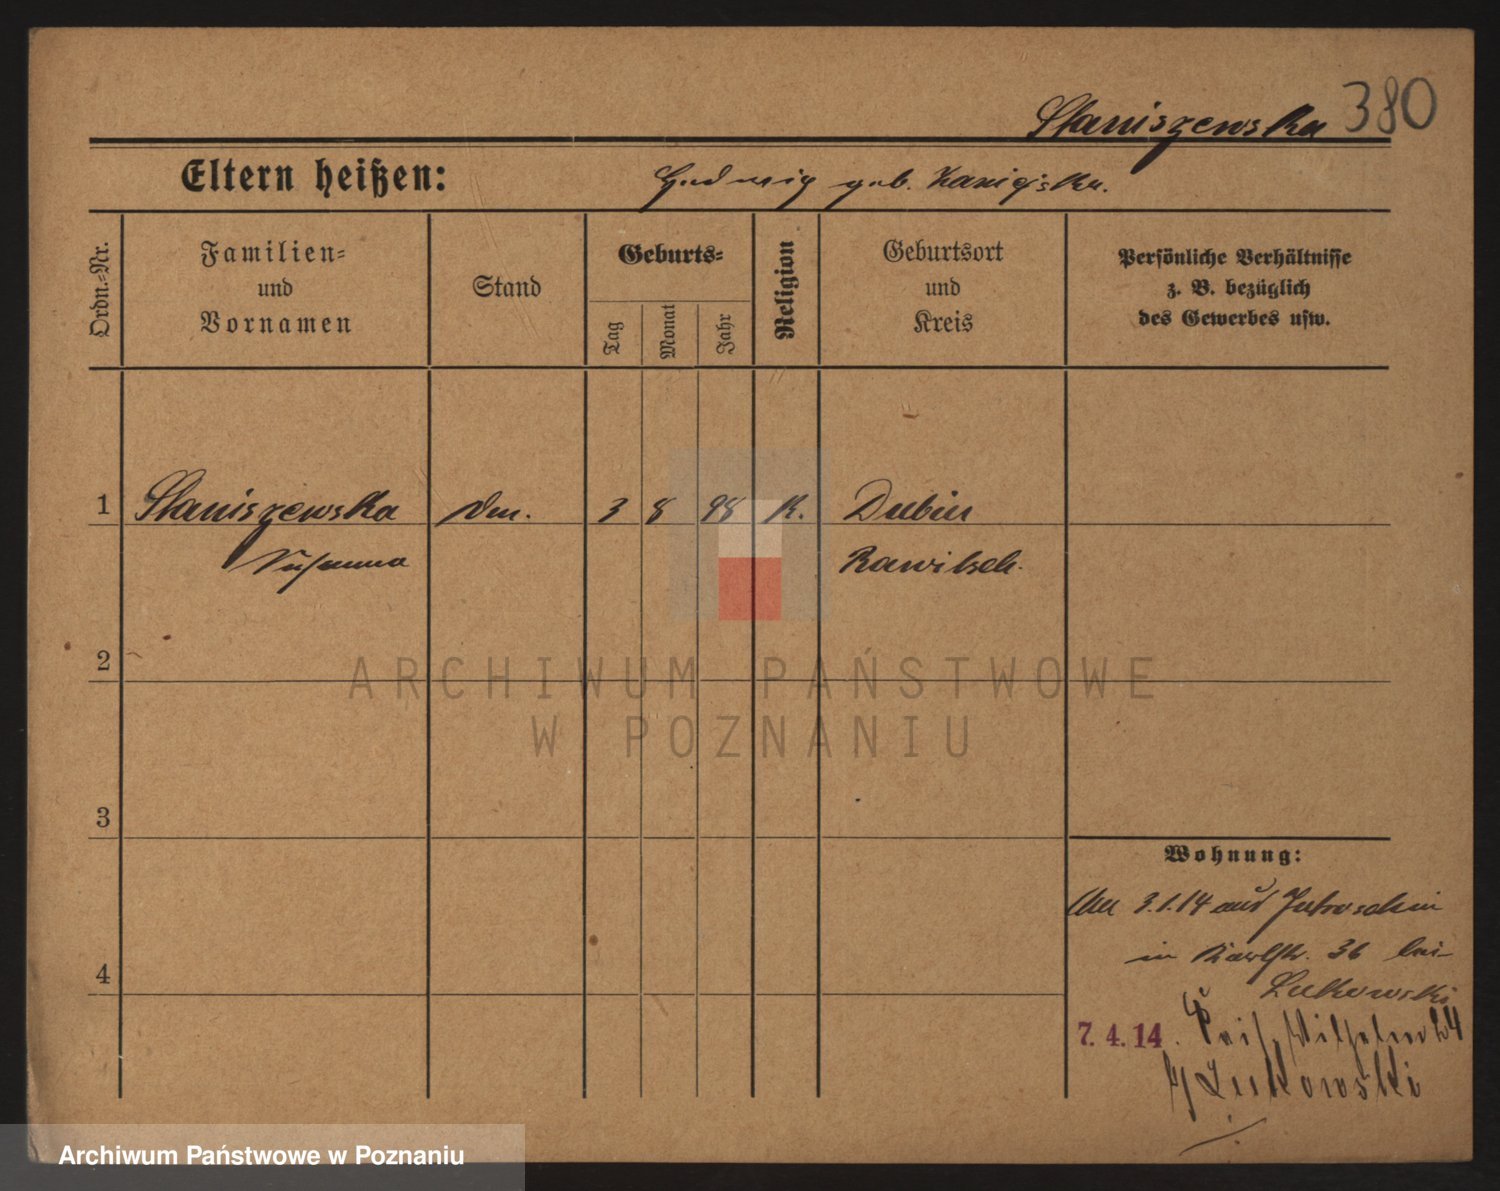 Staniszewska 380
Eltern heißen: Hedwig geb.
Ordn.=Nr.
Familien=
und
Vornamen
Stand
Geburts=
Tag
Monat
Jahr
Religion
Geburtsort
und
Kreis
Persönliche Verhältnisse
z. B. bezüglich
des Gewerbes usw.
1 Staniszewska 3 8 98 K. Dubin
Susanna Rawitsch.
2
ARCHIWUM PAŃSTWOWE
W POZNANIU
3
Wohnung:
3.1.14 aus Jutroschin
4 in 36 bei
Lukowski
7. 4. 14. Wilhelm 24
b/ Lukowski
Archiwum Państwowe w Poznaniu